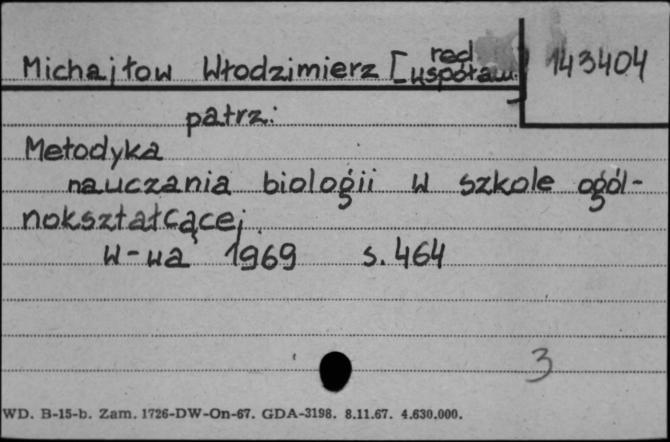 Michajłow Włodzimierz [red
współaut.]
143404
patrz:
Metodyka
nauczania biologii w szkole ogól-
nokształcącej.
W-wa 1969 s. 464
3
WD. B-15-b. Zam. 1726-DW-On-67. GDA-3198. 8.11.67. 4.630.000.